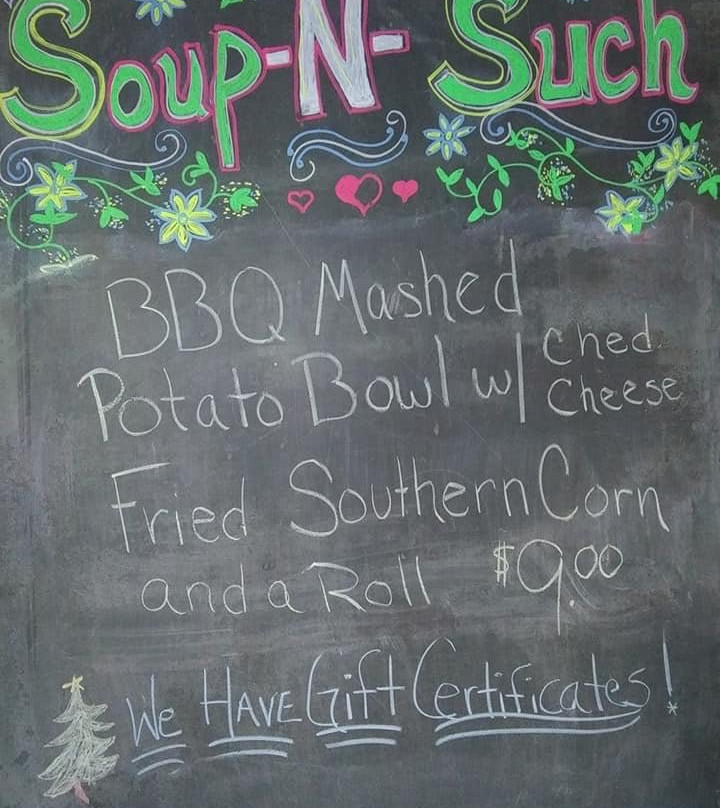 Soup-N-Such
BBQ Mashed
Potato Bowl w/ Ched Cheese
Fried Southern Corn
and a Roll $9.00
We HAVE Gift Certificates!